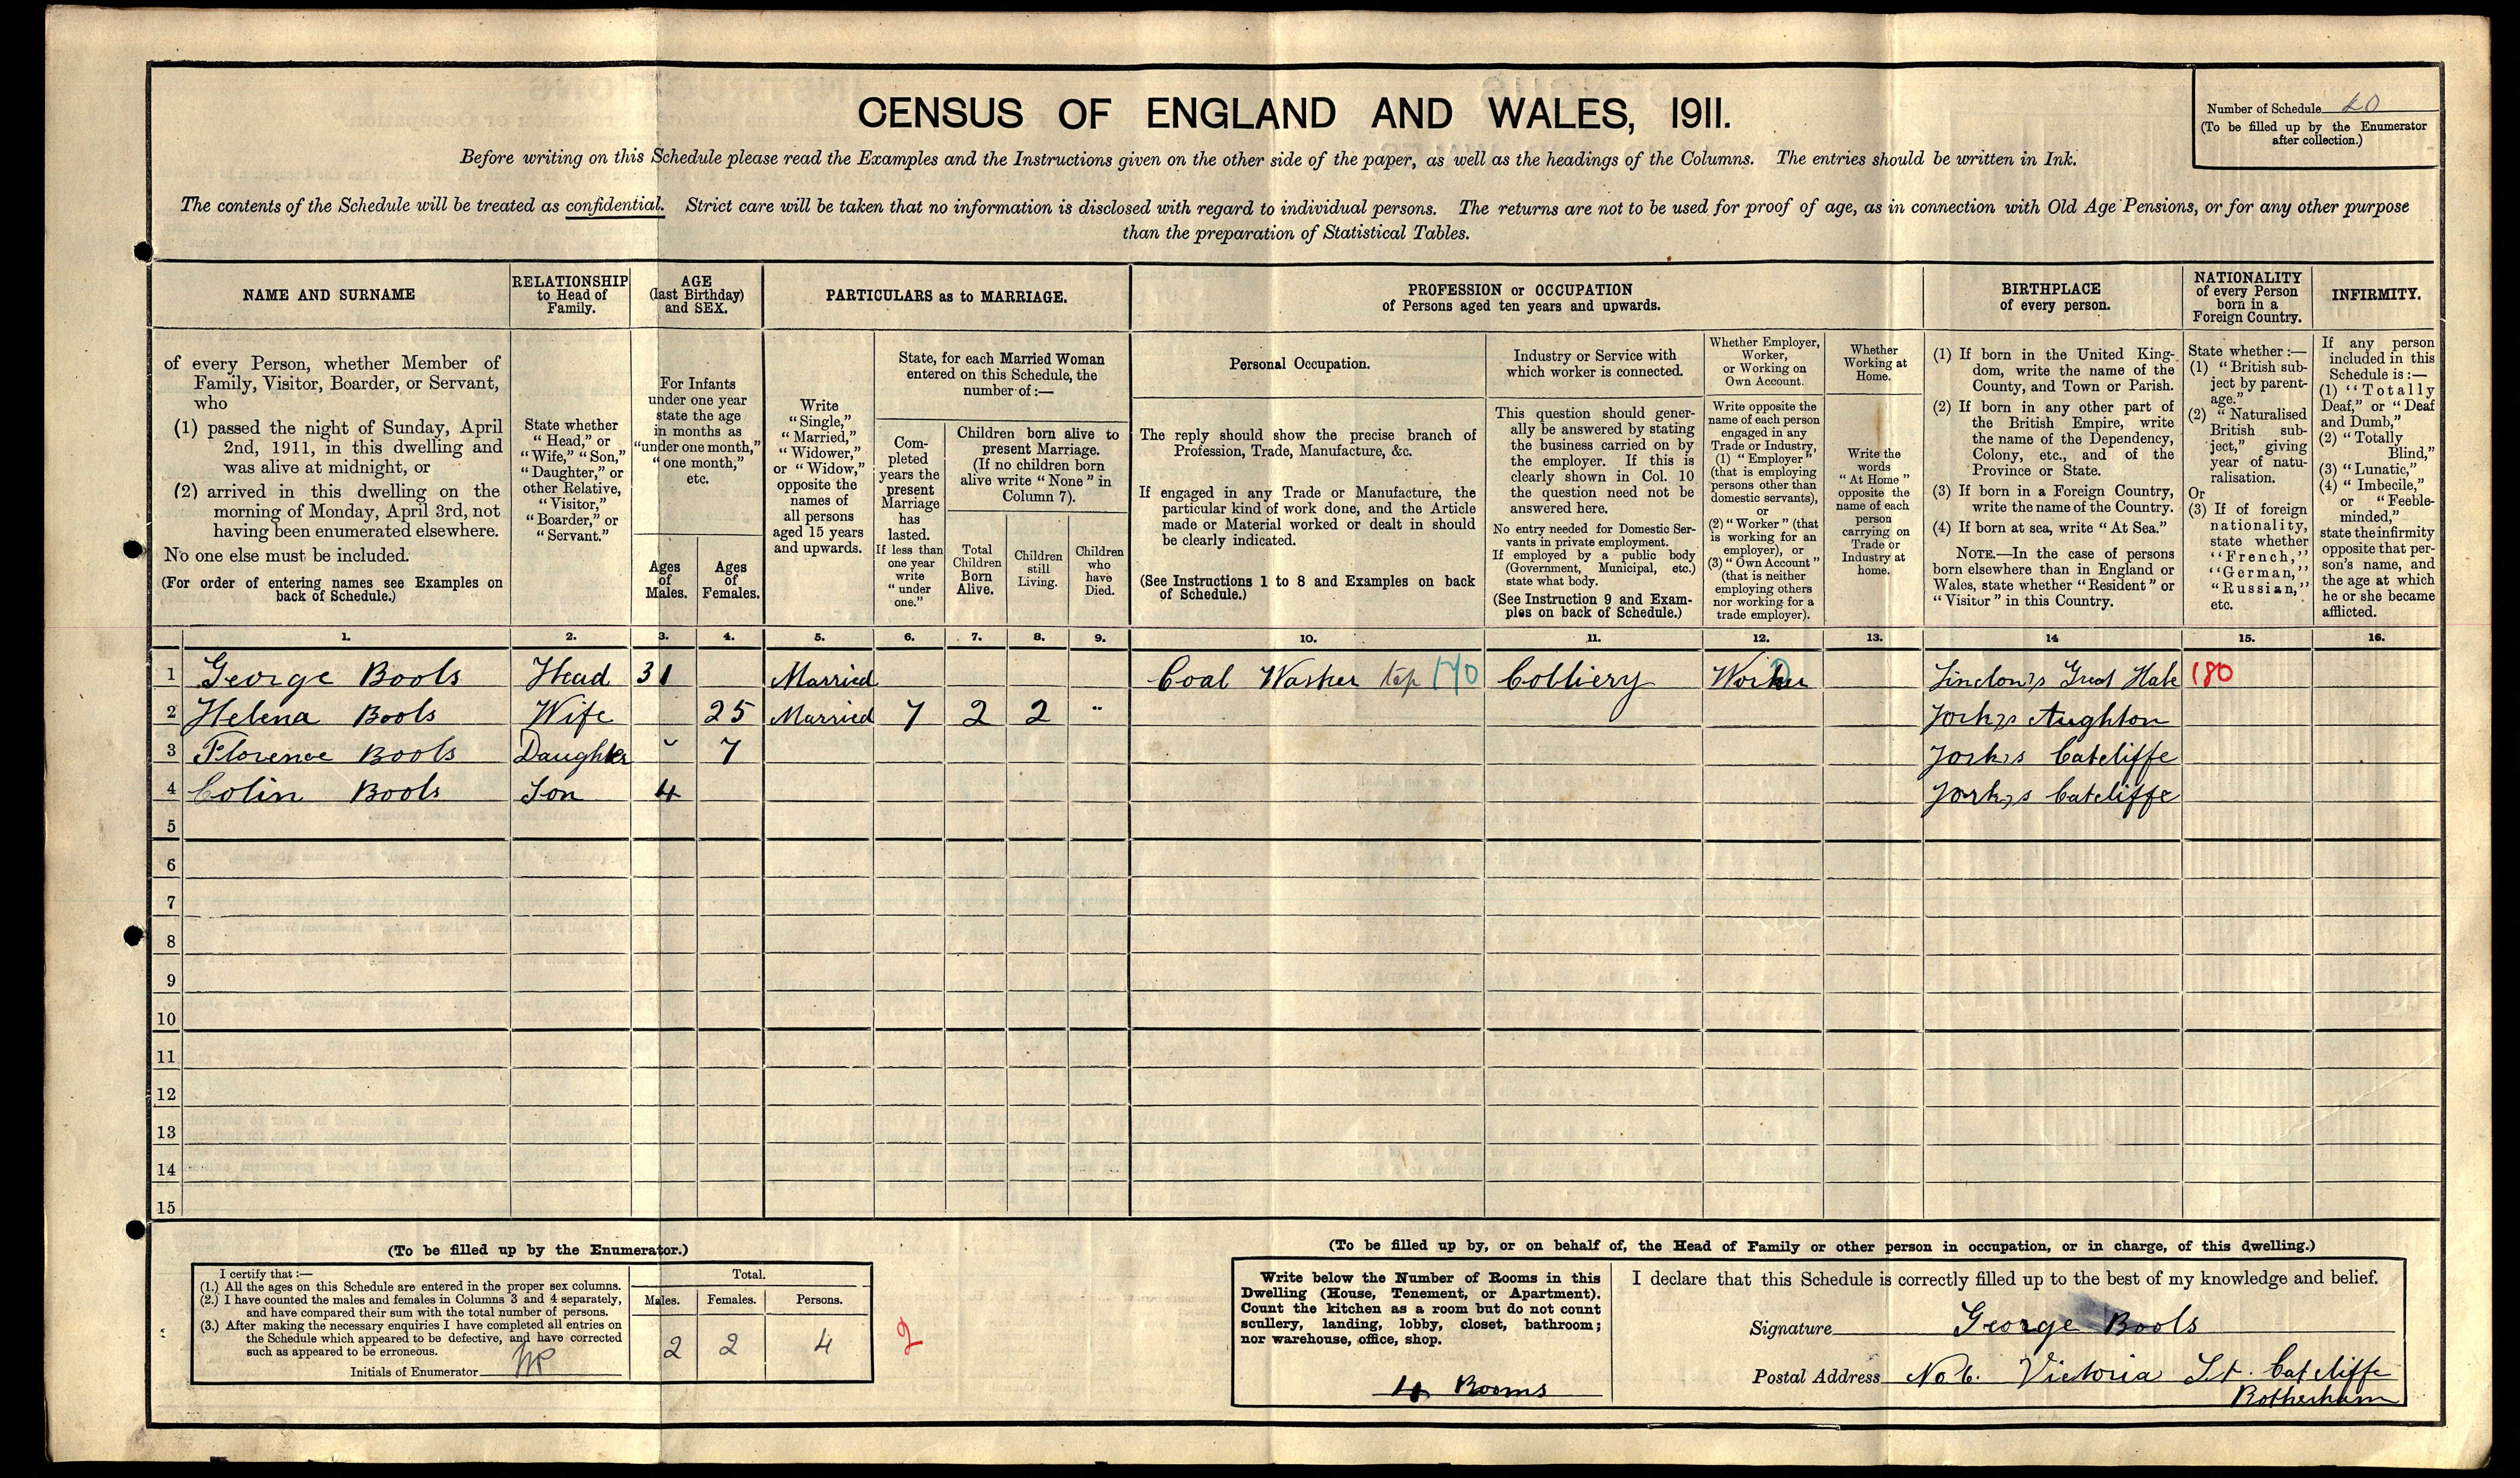 CENSUS OF ENGLAND AND WALES, 1911.
Number of Schedule 20
(To be filled up by the Enumerator
after collection.)
Before writing on this Schedule please read the Examples and the Instructions given on the other side of the paper, as well as the headings of the Columns. The entries should be written in Ink.
The contents of the Schedule will be treated as confidential. Strict care will be taken that no information is disclosed with regard to individual persons. The returns are not to be used for proof of age, as in connection with Old Age Pensions, or for any other purpose
than the preparation of Statistical Tables.
NAME AND SURNAME
of every Person, whether Member of
Family, Visitor, Boarder, or Servant,
who
(1) passed the night of Sunday, April
2nd, 1911, in this dwelling and
was alive at midnight, or
(2) arrived in this dwelling on the
morning of Monday, April 3rd, not
having been enumerated elsewhere.
No one else must be included.
(For order of entering names see Examples on
back of Schedule.)
RELATIONSHIP
to Head of
Family.
State whether
"Head," or
"Wife," "Son,"
"Daughter," or
other Relative,
"Visitor,"
"Boarder," or
"Servant."
AGE
(last Birthday)
and SEX.
For Infants
under one year
state the age
in months as
"under one month,"
"one month,"
etc.
Ages
of
Males.
Ages
of
Females.
PARTICULARS as to MARRIAGE.
Write
"Single,"
"Married,"
"Widower,"
or "Widow,"
opposite the
names of
all persons
aged 15 years
and upwards.
State, for each Married Woman
entered on this Schedule, the
number of:—
Com-
pleted
years the
present
Marriage
has
lasted.
If less than
one year
write
"under
one."
Children born alive to
present Marriage.
(If no children born
alive write "None" in
Column 7).
Total
Children
Born
Alive.
Children
still
Living.
Children
who
have
Died.
PROFESSION or OCCUPATION
of Persons aged ten years and upwards.
Personal Occupation.
The reply should show the precise branch of
Profession, Trade, Manufacture, &c.
If engaged in any Trade or Manufacture, the
particular kind of work done, and the Article
made or Material worked or dealt in should
be clearly indicated.
(See Instructions 1 to 8 and Examples on back
of Schedule.)
Industry or Service with
which worker is connected.
This question should gener-
ally be answered by stating
the business carried on by
the employer. If this is
clearly shown in Col. 10
the question need not be
answered here.
No entry needed for Domestic Ser-
vants in private employment.
If employed by a public body
(Government, Municipal, etc.)
state what body.
(See Instruction 9 and Exam-
ples on back of Schedule.)
Whether Employer,
Worker,
or Working on
Own Account.
Write opposite the
name of each person
engaged in any
Trade or Industry,
(1) "Employer"
(that is employing
persons other than
domestic servants),
or
(2) "Worker" (that
is working for an
employer), or
(3) "Own Account"
(that is neither
employing others
nor working for a
trade employer).
Whether
Working at
Home.
Write the
words
"At Home"
opposite the
name of each
person
carrying on
Trade or
Industry at
home.
BIRTHPLACE
of every person.
(1) If born in the United King-
dom, write the name of the
County, and Town or Parish.
(2) If born in any other part of
the British Empire, write
the name of the Dependency,
Colony, etc., and of the
Province or State.
(3) If born in a Foreign Country,
write the name of the Country.
(4) If born at sea, write "At Sea."
NOTE.—In the case of persons
born elsewhere than in England or
Wales, state whether "Resident" or
"Visitor" in this Country.
NATIONALITY
of every Person
born in a
Foreign Country.
State whether:—
(1) "British sub-
ject by parent-
age."
(2) "Naturalised
British sub-
ject," giving
year of natu-
ralisation.
Or
(3) If of foreign
nationality,
state whether
"French,"
"German,"
"Russian,"
etc.
INFIRMITY.
If any person
included in this
Schedule is:—
(1) "Totally
Deaf," or "Deaf
and Dumb,"
(2) "Totally
Blind,"
(3) "Lunatic,"
(4) "Imbecile,"
or "Feeble-
minded,"
state the infirmity
opposite that per-
son's name, and
the age at which
he or she became
afflicted.
1. 2. 3. 4. 5. 6. 7. 8. 9. 10. 11. 12. 13. 14 15. 16.
1 George Bools Head 31 Married Coal Washer top 170 Colliery Worker Lincolns Great Hale 180
2 Helena Bools Wife 25 Married 7 2 2 " Yorks Aughton
3 Florence Bools Daughter 7 Yorks Catcliffe
4 Colin Bools Son 4 Yorks Catcliffe
5
6
7
8
9
10
11
12
13
14
15
(To be filled up by the Enumerator.)
I certify that:—
(1.) All the ages on this Schedule are entered in the proper sex columns.
(2.) I have counted the males and females in Columns 3 and 4 separately,
and have compared their sum with the total number of persons.
(3.) After making the necessary enquiries I have completed all entries on
the Schedule which appeared to be defective, and have corrected
such as appeared to be erroneous.
Initials of Enumerator
Total.
Males. Females. Persons.
2 2 4
2
(To be filled up by, or on behalf of, the Head of Family or other person in occupation, or in charge, of this dwelling.)
Write below the Number of Rooms in this
Dwelling (House, Tenement, or Apartment).
Count the kitchen as a room but do not count
scullery, landing, lobby, closet, bathroom;
nor warehouse, office, shop.
4 Rooms
I declare that this Schedule is correctly filled up to the best of my knowledge and belief.
Signature George Bools
Postal Address No 6. Victoria St. Catcliffe
Rotherham